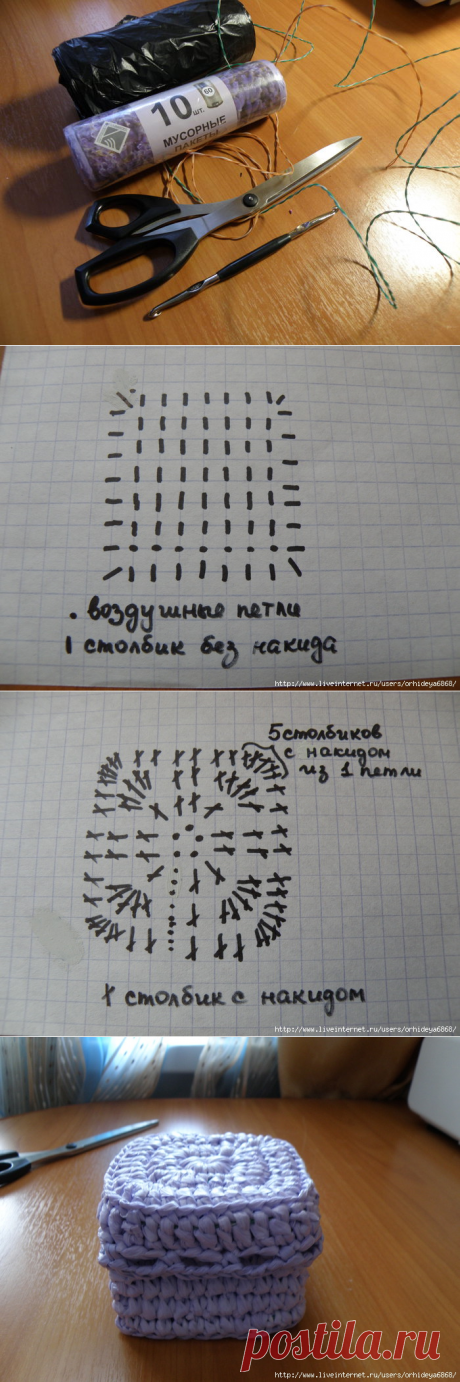 10 шт.
60
МУСОРНЫЕ
ПАКЕТЫ
. воздушные петли
| столбик без накида
http://www.liveinternet.ru/users/orhideya6868/
5 столбиков
с накидом
из 1 петли
столбик с накидом
http://www.liveinternet.ru/users/orhideya6868/
postila.ru
http://www.liveinternet.ru/users/orhideya6868/